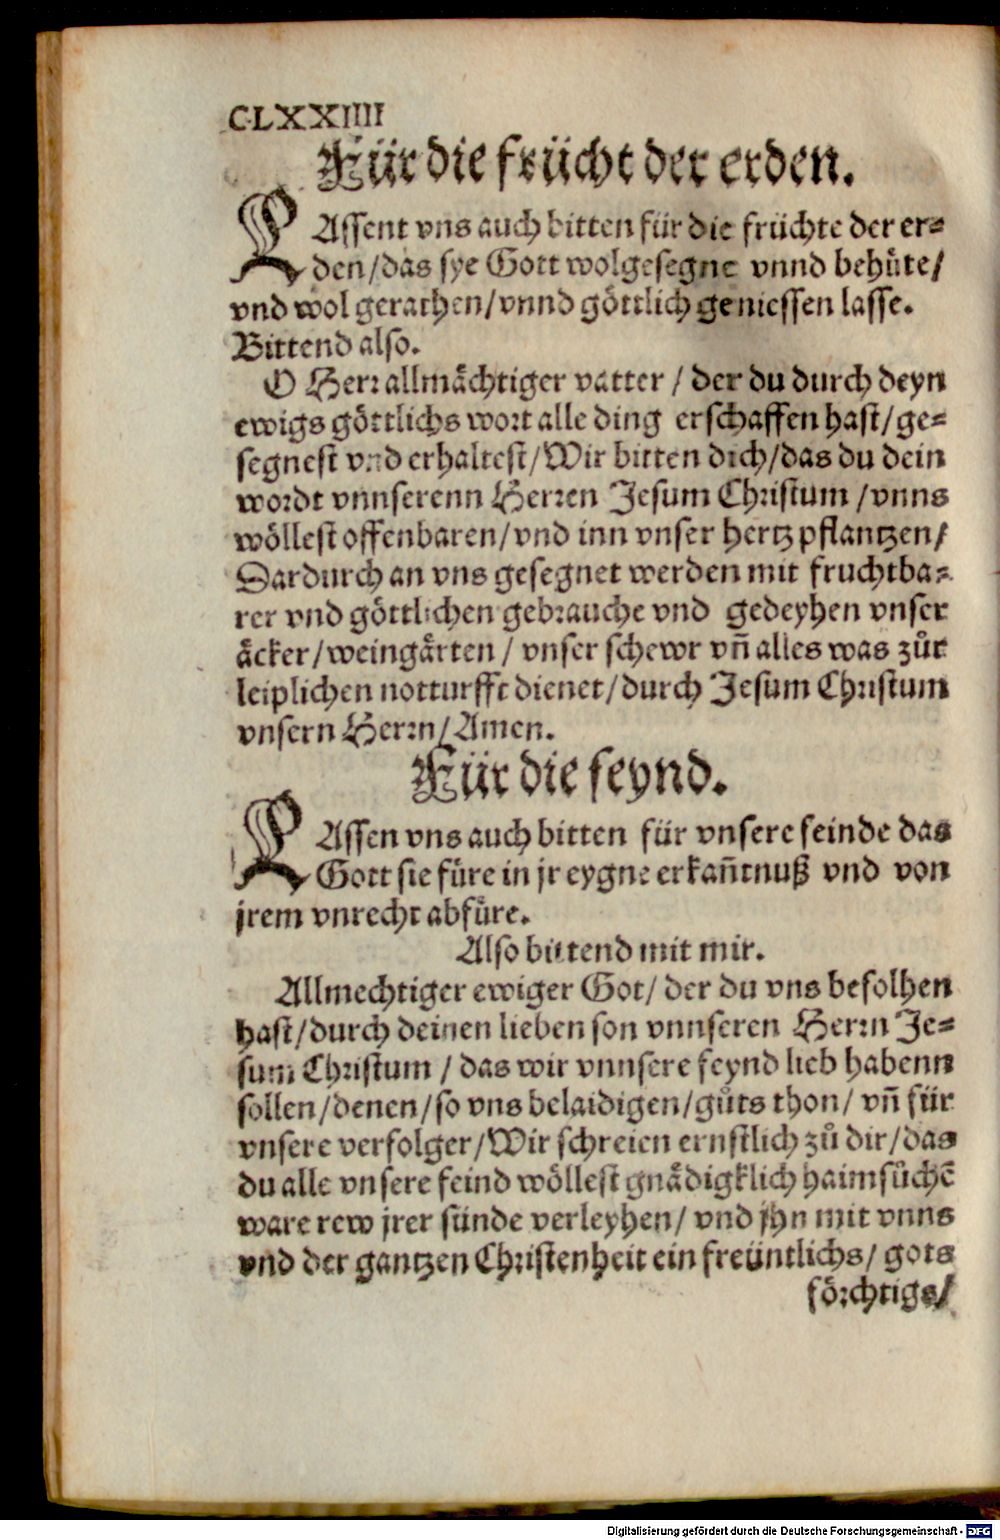 CLXXIIII
Für die frücht der erden.
LAssent vns auch bitten für die früchte der er⸗
den/das sye Gott wolgesegne vnnd behüte/
vnd wol gerathen/vnnd göttlich geniessen lasse.
Bittend also.
O Herr allmächtiger vatter / der du durch deyn
ewigs göttlichs wort alle ding erschaffen hast/ge⸗
segnest vnd erhaltest/Wir bitten dich/das du dein
wordt vnnserenn Herren Jesum Christum /vnns
wöllest offenbaren/vnd inn vnser hertz pflantzen/
Dardurch an vns gesegnet werden mit fruchtba⸗
rer vnd göttlichen gebrauche vnd gedeyhen vnser
äcker/weingärten / vnser schewr vñ alles was zůr
leiplichen notturfft dienet/durch Jesum Christum
vnsern Herrn/Amen.
Für die feynd.
LAssen vns auch bitten für vnsere feinde das
Gott sie füre in jr eygne erkañtnuß vnd von
jrem vnrecht abfüre.
Also bittend mit mir.
Allmechtiger ewiger Got/ der du vns befolhen
hast/durch deinen lieben son vnnseren Herrn Je⸗
sum Christum / das wir vnnsere feynd lieb habenn
sollen/denen/so vns belaidigen/gůts thon/ vñ für
vnsere verfolger/Wir schreien ernstlich zů dir/das
du alle vnsere feind wöllest gnädigklich haimsůchẽ
ware rew jrer sünde verleyhen/ vnd jhn mit vnns
vnd der gantzen Christenheit ein freüntlichs/ gots
förchtigs/
Digitalisierung gefördert durch die Deutsche Forschungsgemeinschaft - DFG